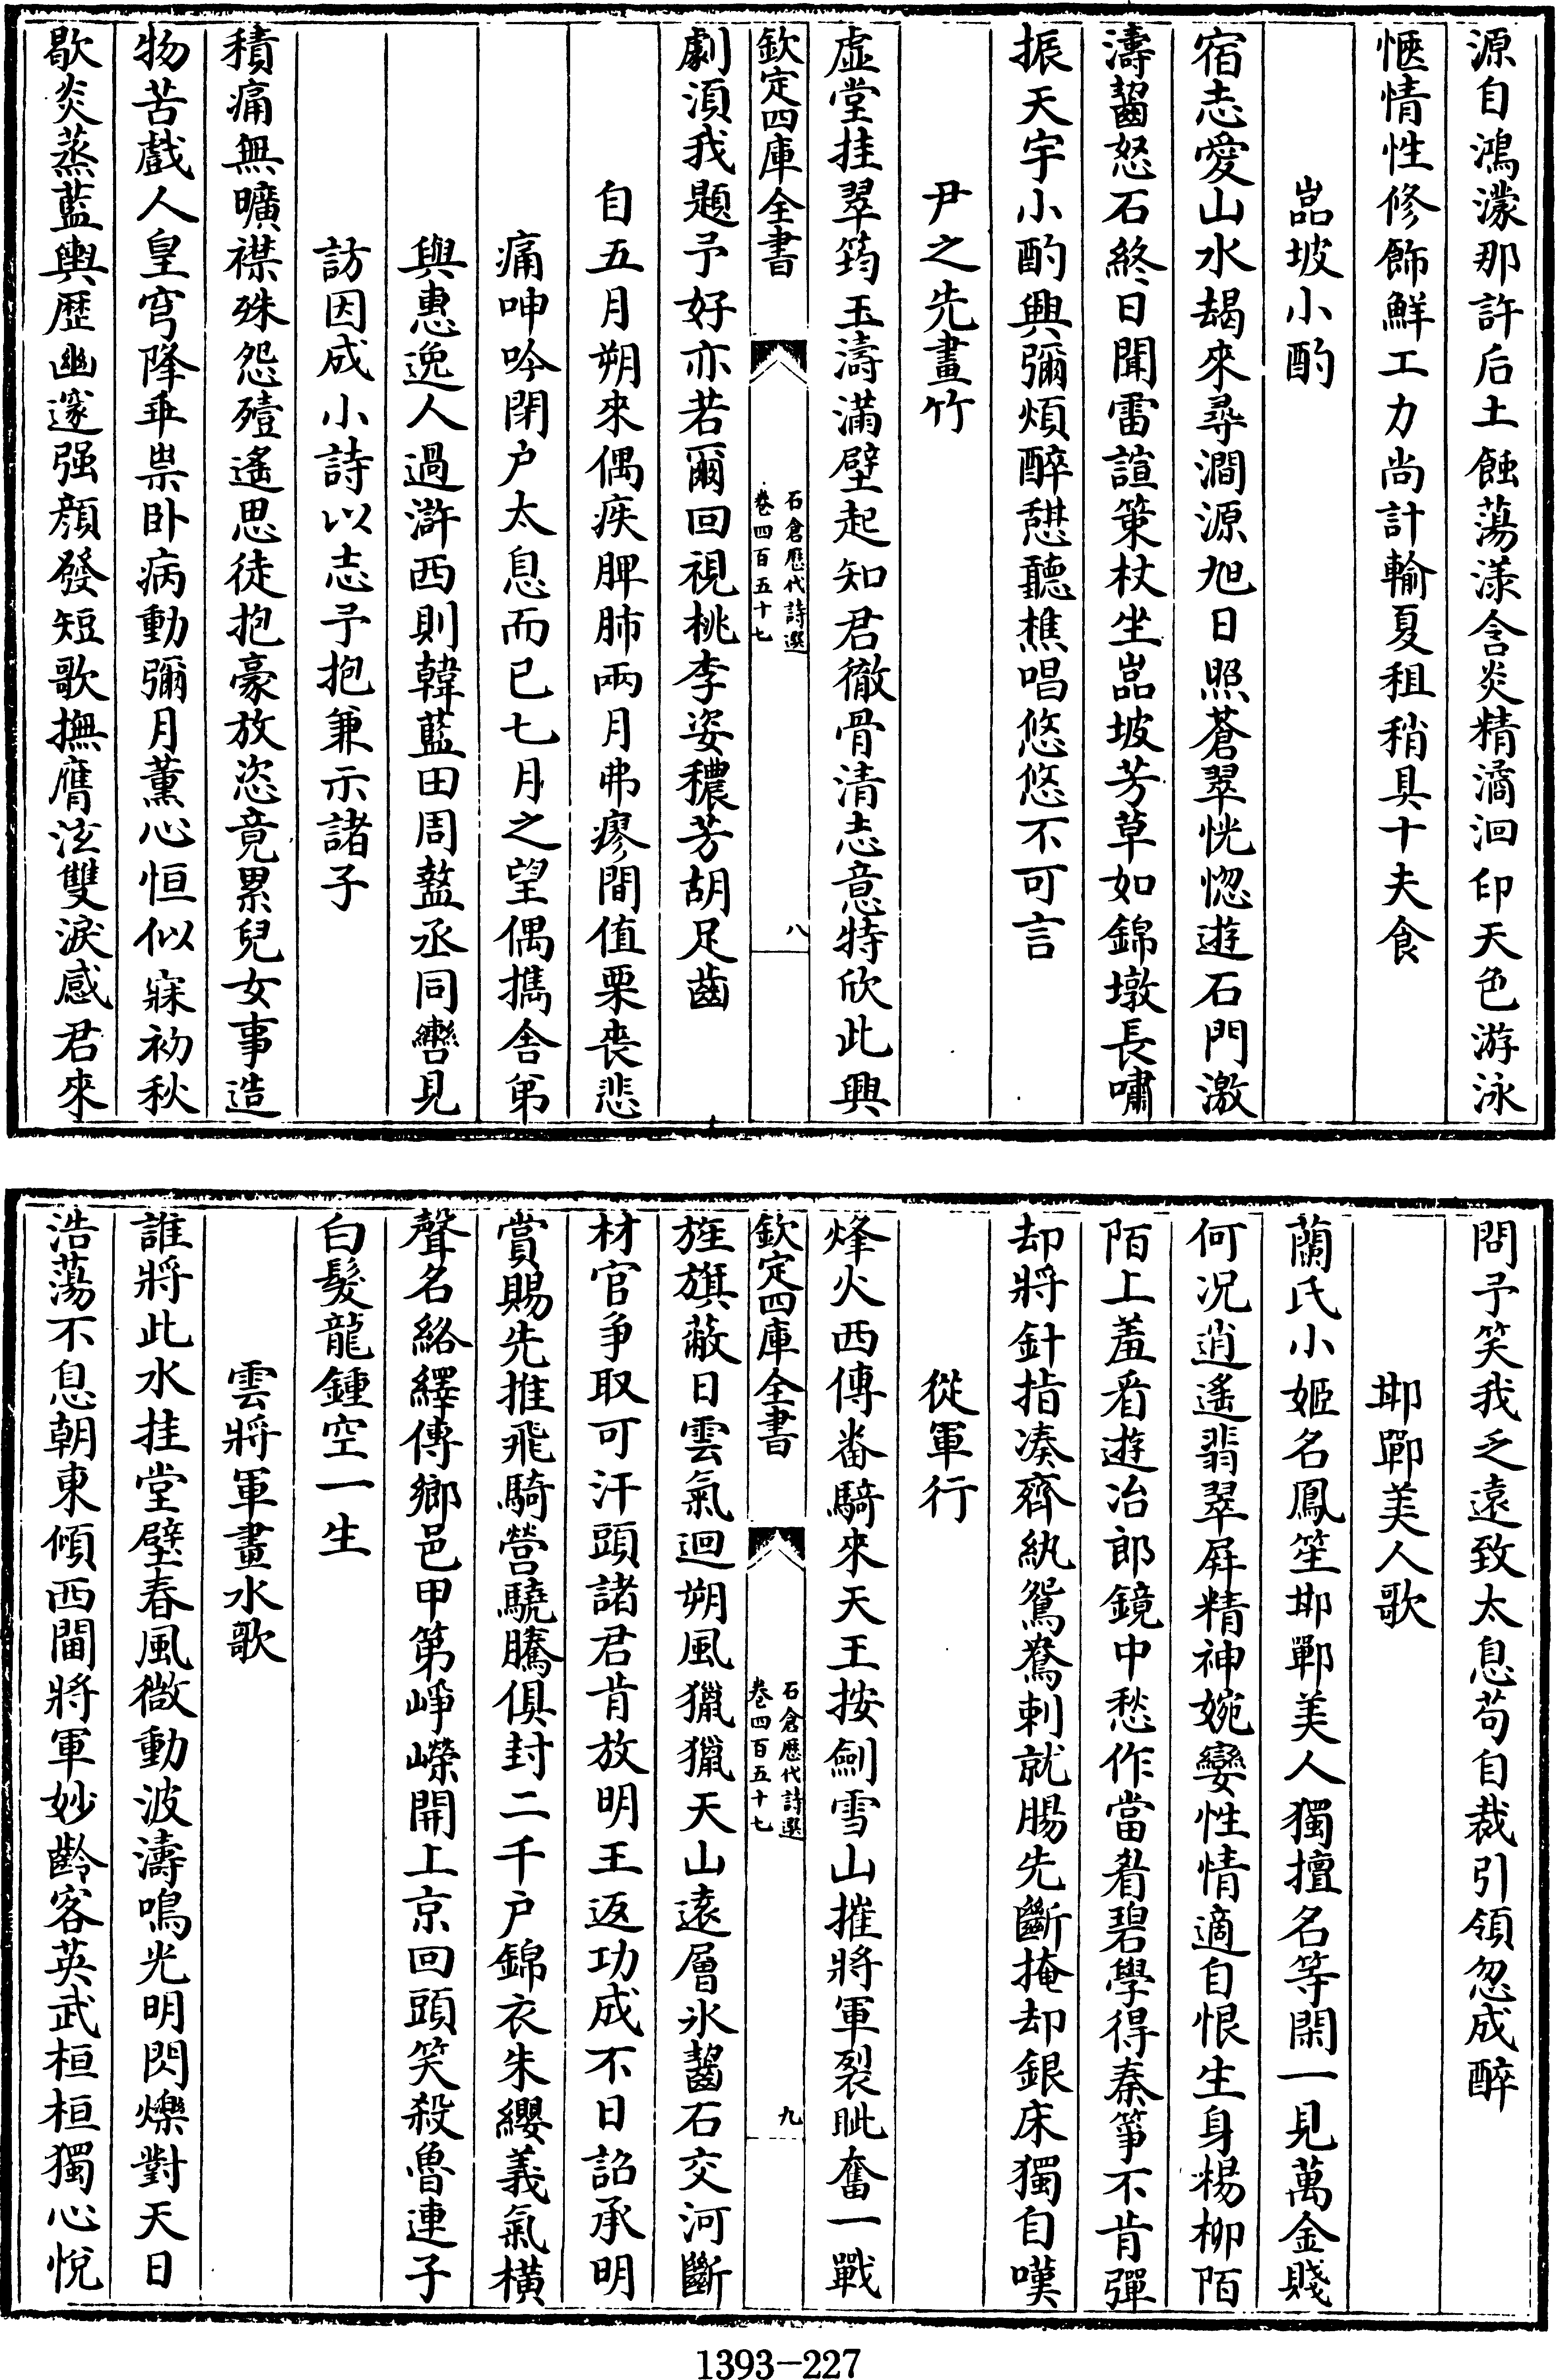 源自鴻濛那許后土蝕蕩漾含炎精潏洄印天色游泳
愜情性修飾鮮工力尚計輸夏租稍具十夫食
嵓坡小酌
宿志愛山水朅來尋澗源旭日照蒼翠恍惚遊石門激
濤齧怒石終日聞雷諠策杖坐嵓坡芳草如錦墩長嘯
振天宇小酌興彌煩醉憇聽樵唱悠悠不可言
尹之先畫竹
虛堂挂翠筠玉濤滿壁起知君徹骨清志意特欣此興
欽定四庫全書
石倉歷代詩選
卷四百五十七
八
劇湏我題予好亦若爾回視桃李姿穠芳胡足齒
自五月朔來偶疾脾肺兩月弗瘳間值栗喪悲
痛呻吟閉户太息而已七月之望偶擕舍弟
與惠逸人過滸西則韓藍田周盩丞同轡見
訪因成小詩以志予抱兼示諸子
積痛無曠襟殊怨殪遙思徒抱豪放恣竟累兒女事造
物苦戲人皇穹降乖祟卧病動彌月薰心恒似寐初秋
歇炎蒸藍輿歷幽邃强顔發短歌撫膺泫雙淚感君來
問予笑我乏遠致太息苟自裁引領忽成醉
邯鄲美人歌
蘭氏小姬名鳳笙邯鄲美人獨擅名等閑一見萬金賤
何况逍遙翡翠屛精神婉孌性情適自恨生身楊柳陌
陌上羞看遊冶郎鏡中愁作當㸔碧學得秦箏不肯彈
却將針指凑齊紈鴛鴦刺就腸先斷掩却銀床獨自嘆
從軍行
烽火西傳畨騎來天王按劍雪山摧將軍裂眦奮一戰
欽定四庫全書
石倉歷代詩選
卷四百五十七
九
旌旗蔽日雲氣迴朔風獵獵天山遠層氷齧石交河斷
材官争取可汗頭諸君肯放明王返功成不日詔承明
賞賜先推飛騎營驍騰俱封二千户錦衣朱纓義氣橫
聲名絡繹傳鄉邑甲第崢嶸開上京回頭笑殺魯連子
白髮龍鍾空一生
雲將軍畫水歌
誰將此水挂堂壁春風微動波濤鳴光明閃爍對天日
浩蕩不息朝東傾西閫將軍妙齡客英武桓桓獨心悅
1393-227